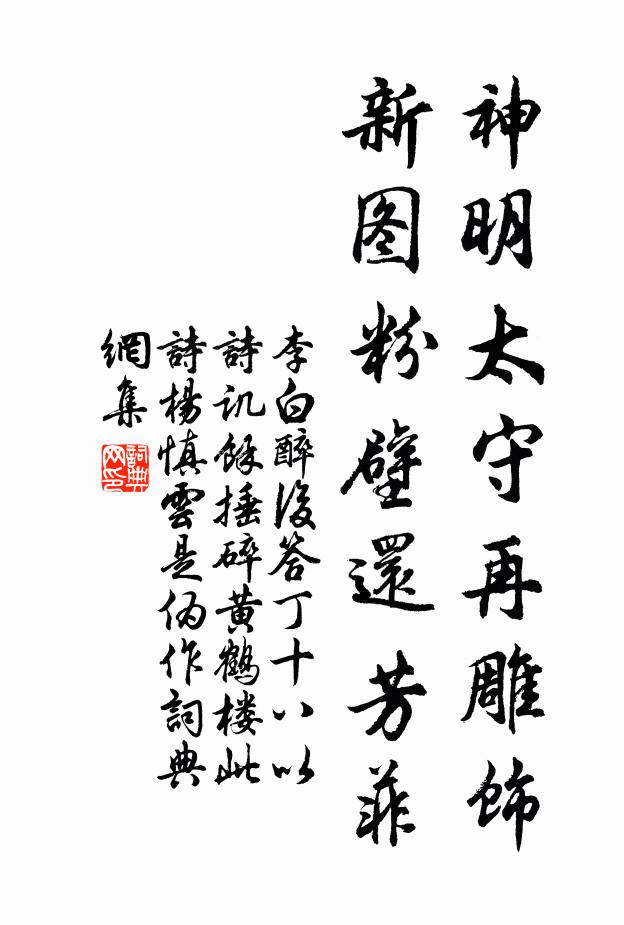 神明太守再雕飾
新图粉壁還芳菲
李白醉後答丁十八以
詩讥餘捶碎黄鶴楼此
詩楊慎雲是偽作詞典
網集
詞典網印